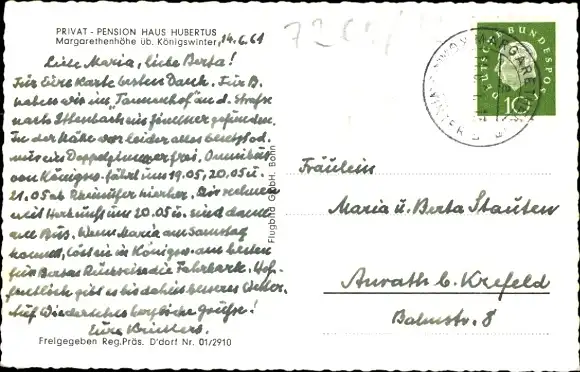 PRIVAT - PENSION HAUS HUBERTUS
Margarethenhöhe üb. Königswinter, 14.6.61
Liebe Maria, liebe Berta!
Für Eure Karte besten Dank. Für B.
haben wir im "Tannenhof" an d. Straße
nach Ittenbach ein Zimmer gefunden.
In der Nähe war leider alles besetzt od.
nur ein Doppelzimmer frei. Omnibus
von Königsw. fährt um 19.05, 20.05 u.
21.05 ab Rheinufer hierher. Wir rechnen
mit Herkunft um 20.05 u. sind dann
am Bus. Wenn Maria am Samstag
kommt, löst sie in Königsw. am besten
für Bertas Rückreise die Fahrkarte. Hof-
fentlich gibt es bis dahin besseres Wetter.
Auf Wiedersehen herzliche Grüße!
Eure
Freigegeben Reg.Präs. D'dorf Nr. 01/2910
Flugbild GmbH. Bonn
DEUTSCHE BUNDESPOST
10
Fräulein
Maria u. Berta Stauten
Anrath b. Krefeld
Bahnstr. 8